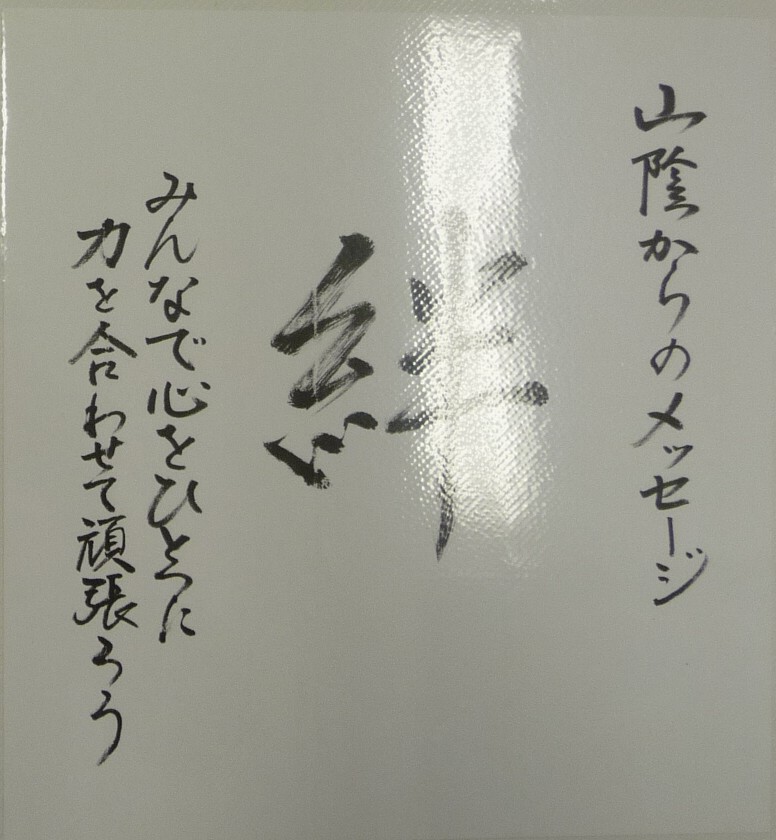 山陰からのメッセージ
絆
みんなで心をひとつに
力を合わせて頑張ろう